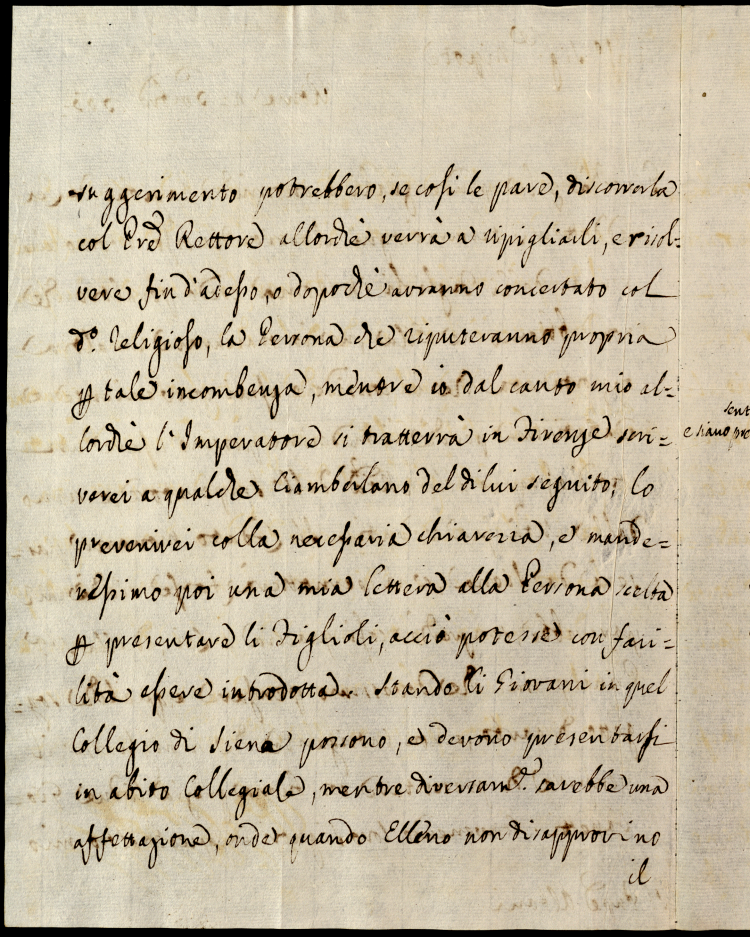 suggerimento potrebbero, se cosi le pare, discorrerla
col Pre Rettore allorchè verrà a ripigliarli, e risol=
vere fin d'adesso, o dopochè avranno concertato col
do. Religioso, la Persona che riputeranno propria
p tale incombenza, mentre io dal canto mio al=
lorchè l'Imperatore si tratterrà in Firenze scri=
verei a qualche Ciamberlano del di lui seguito, lo
prevenirei colla necessaria chiarezza, e mande=
ressimo poi una mia lettera alla Persona scelta
p presentare li Figlioli, acciò potesse con faci=
lità essere introdotta. Stando li Giovani in quel
Collegio di Siena possono, e devono presentarsi
in abito Collegiale, mentre diversamte. sarebbe una
affettazione, onde quando Elleno non disapprovino
il
sent
e siano pre